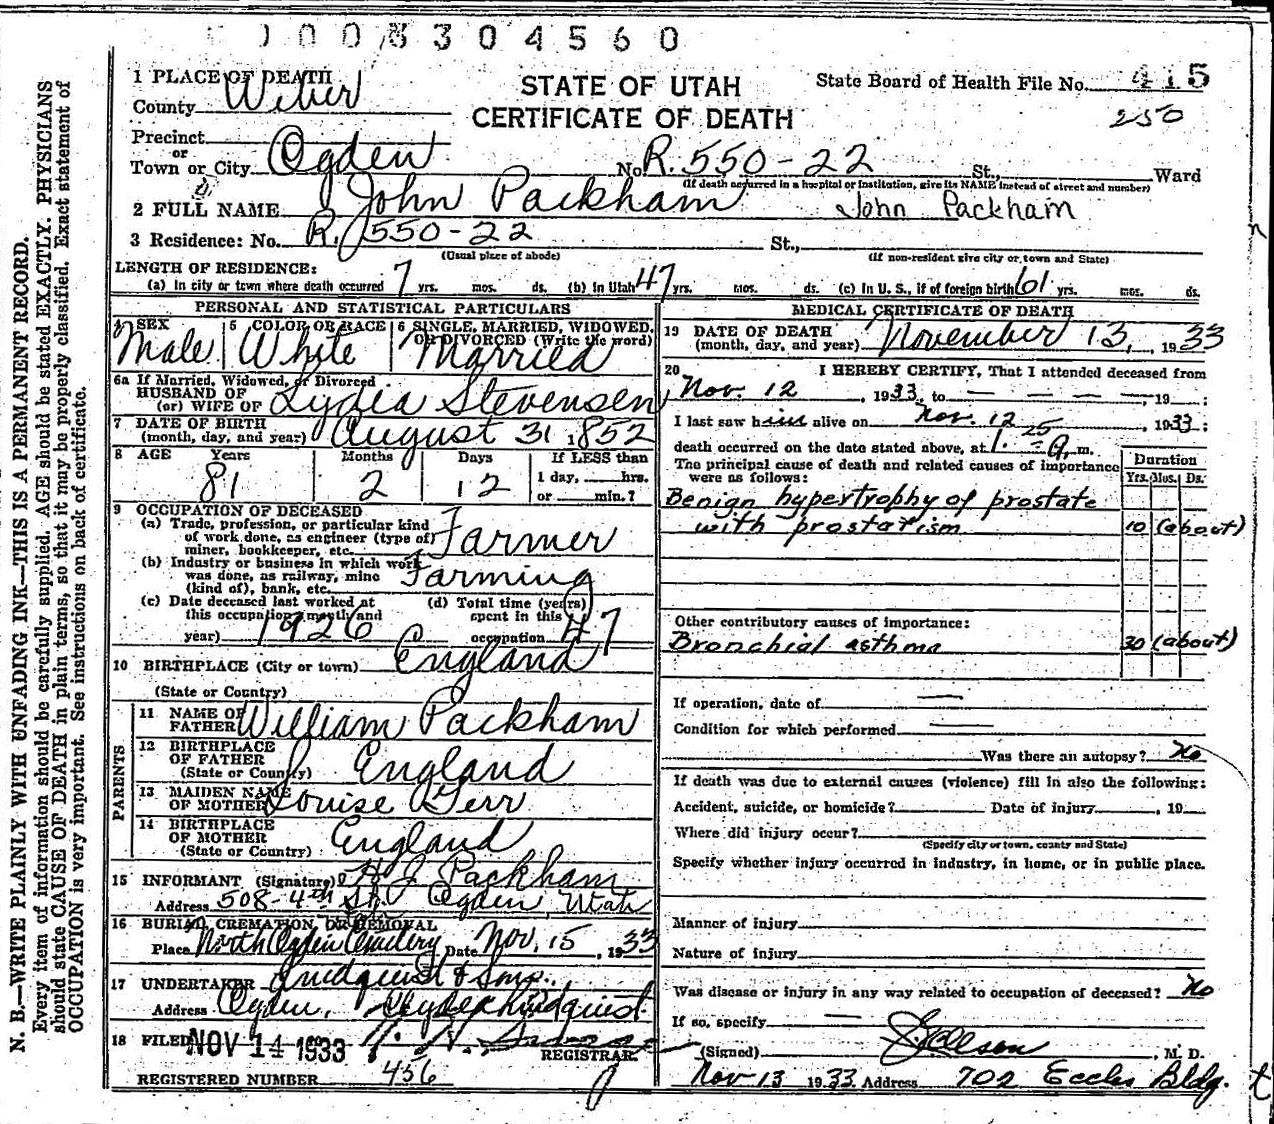 0 0 0 3 3 0 4 5 6 0
N. B.—WRITE PLAINLY WITH UNFADING INK—THIS IS A PERMANENT RECORD.
Every item of information should be carefully supplied. AGE should be stated EXACTLY. PHYSICIANS
should state CAUSE OF DEATH in plain terms, so that it may be properly classified. Exact statement of
OCCUPATION is very important. See instructions on back of certificate.
STATE OF UTAH
CERTIFICATE OF DEATH
State Board of Health File No. 415
250
1 PLACE OF DEATH
County Weber
Precinct
or
Town or City Ogden No. R. 550-22 St., Ward
(If death occurred in a hospital or institution, give its NAME instead of street and number)
2 FULL NAME John Packham John Packham
3 Residence: No. R. 550-22 St.,
(Usual place of abode) (If non-resident give city or town and State)
LENGTH OF RESIDENCE:
(a) In city or town where death occurred 7 yrs. mos. ds. (b) In Utah 47 yrs. mos. ds. (c) In U. S., if of foreign birth 61 yrs. mos. ds.
PERSONAL AND STATISTICAL PARTICULARS
4 SEX Male
5 COLOR OR RACE White
6 SINGLE, MARRIED, WIDOWED, OR DIVORCED (Write the word) Married
6a If Married, Widowed, or Divorced
HUSBAND OF
(or) WIFE OF Lydia Stevensen
7 DATE OF BIRTH
(month, day, and year) August 31, 1852
8 AGE Years 81 Months 2 Days 12 If LESS than
1 day, hrs.
or min.?
9 OCCUPATION OF DECEASED
(a) Trade, profession, or particular kind
of work done, as engineer (type of)
miner, bookkeeper, etc. Farmer
(b) Industry or business in which work
was done, as railway, mine
(kind of), bank, etc. Farming
(c) Date deceased last worked at
this occupation (month and
year) 1926
(d) Total time (years)
spent in this
occupation 47
10 BIRTHPLACE (City or town) England
(State or Country)
PARENTS
11 NAME OF
FATHER William Packham
12 BIRTHPLACE
OF FATHER
(State or Country) England
13 MAIDEN NAME
OF MOTHER Louise Gerr
14 BIRTHPLACE
OF MOTHER
(State or Country) England
15 INFORMANT (Signature) H J Packham
Address 508-4th St. Ogden, Utah
16 BURIAL, CREMATION, OR REMOVAL
Place North Ogden Cemetery Date Nov. 15, 1933
17 UNDERTAKER Lindquist & Sons.
Address Ogden, Clyde Lindquist
18 FILED NOV 14 1933
REGISTRAR.
REGISTERED NUMBER 456
MEDICAL CERTIFICATE OF DEATH
19 DATE OF DEATH
(month, day, and year) November 13, 1933
20 I HEREBY CERTIFY, That I attended deceased from
Nov. 12, 1933, to — — — —, 19 ;
I last saw him alive on Nov. 12, 1933;
death occurred on the date stated above, at 1:25 a. m.
The principal cause of death and related causes of importance
were as follows:
Duration
Yrs. Mos. Ds.
Benign hypertrophy of prostate
with prostatism 10 (about)
Other contributory causes of importance:
Bronchial asthma 30 (about)
If operation, date of —
Condition for which performed —
Was there an autopsy? No
If death was due to external causes (violence) fill in also the following:
Accident, suicide, or homicide? Date of injury , 19
Where did injury occur?
(Specify city or town, county and State)
Specify whether injury occurred in industry, in home, or in public place.
Manner of injury
Nature of injury
Was disease or injury in any way related to occupation of deceased? No
If so, specify —
(Signed) , M. D.
Nov 13 1933 Address 702 Eccles Bldg.